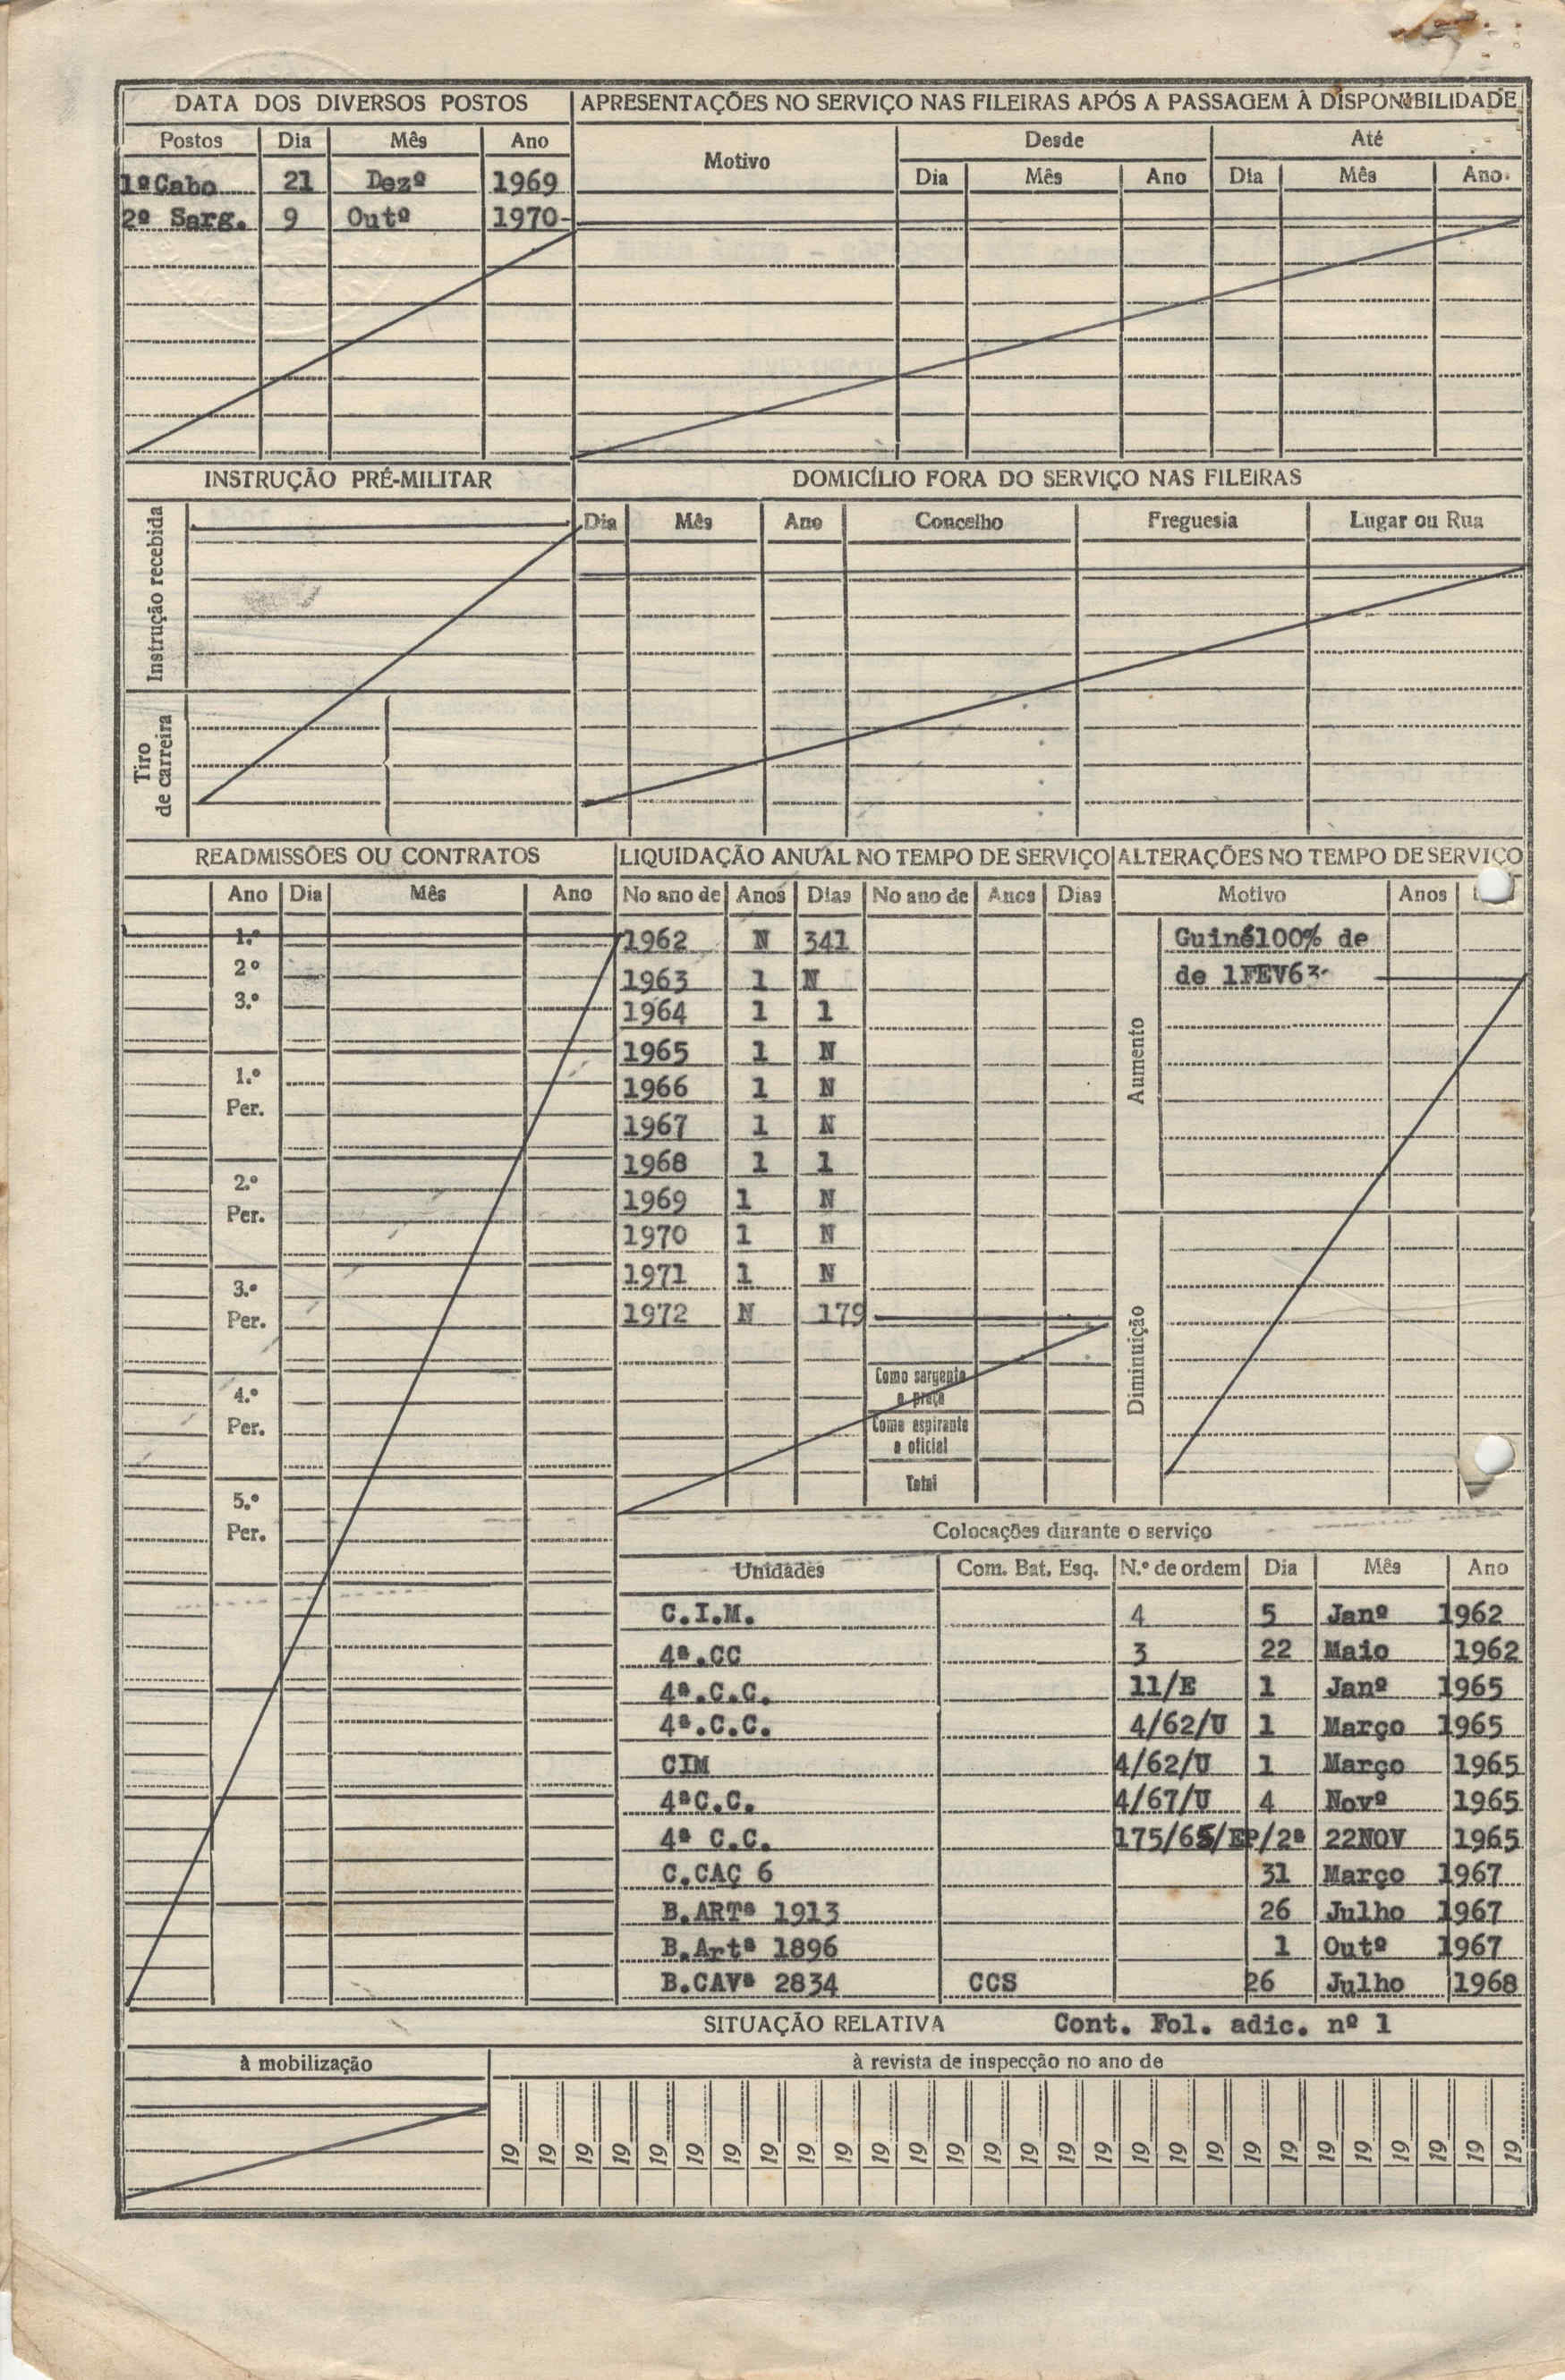 DATA DOS DIVERSOS POSTOS
Postos Dia Mês Ano
1ºCabo 21 Dezº 1969
2º Sarg. 9 Outº 1970-
APRESENTAÇÕES NO SERVIÇO NAS FILEIRAS APÓS A PASSAGEM À DISPONIBILIDADE
Motivo Desde Até
Dia Mês Ano Dia Mês Ano
INSTRUÇÃO PRÉ-MILITAR
Instrução recebida
Tiro
de carreira
DOMICÍLIO FORA DO SERVIÇO NAS FILEIRAS
Dia Mês Ano Concelho Freguesia Lugar ou Rua
READMISSÕES OU CONTRATOS
Ano Dia Mês Ano
1.º
2º
3.º
1.º
Per.
2.º
Per.
3.º
Per.
4.º
Per.
5.º
Per.
LIQUIDAÇÃO ANUAL NO TEMPO DE SERVIÇO
No ano de Anos Dias No ano de Anos Dias
1962 N 341
1963 1 N
1964 1 1
1965 1 N
1966 1 N
1967 1 N
1968 1 1
1969 1 N
1970 1 N
1971 1 N
1972 N 179
Como sargento
e praça
Como aspirante
e oficial
Total
ALTERAÇÕES NO TEMPO DE SERVIÇO
Motivo Anos
Aumento
Guiné100% de
de 1FEV63
Diminuição
Colocações durante o serviço
Unidades Com. Bat. Esq. N.º de ordem Dia Mês Ano
C.I.M. 4 5 Janº 1962
4ª.CC 3 22 Maio 1962
4ª.C.C. 11/E 1 Janº 1965
4ª.C.C. 4/62/U 1 Março 1965
CIM 4/62/U 1 Março 1965
4ªC.C. 4/67/U 4 Novº 1965
4ª C.C. 175/65/EP/2ª 22NOV 1965
C.CAÇ 6 31 Março 1967
B.ARTª 1913 26 Julho 1967
B.Artª 1896 1 Outº 1967
B.CAVª 2834 CCS 26 Julho 1968
SITUAÇÃO RELATIVA Cont. Fol. adic. nº 1
à mobilização
à revista de inspecção no ano de
19 19 19 19 19 19 19 19 19 19 19 19 19 19 19 19 19 19 19 19 19 19 19 19 19 19 19 19